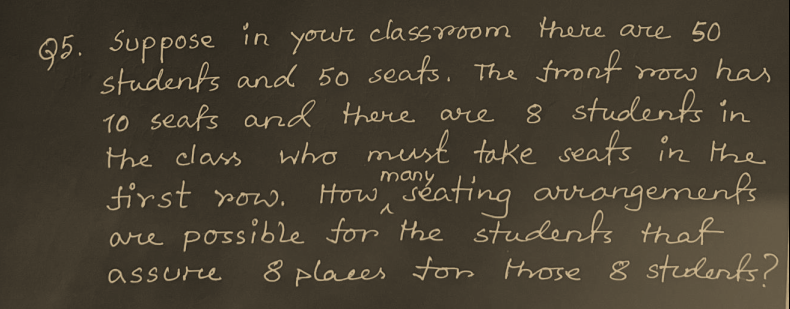 Q5. Suppose in your classroom there are 50
students and 50 seats. The front row has
10 seats and there are 8 students in
the class who must take seats in the
first row. How many seating arrangements
are possible for the students that
assure 8 places for those 8 students?